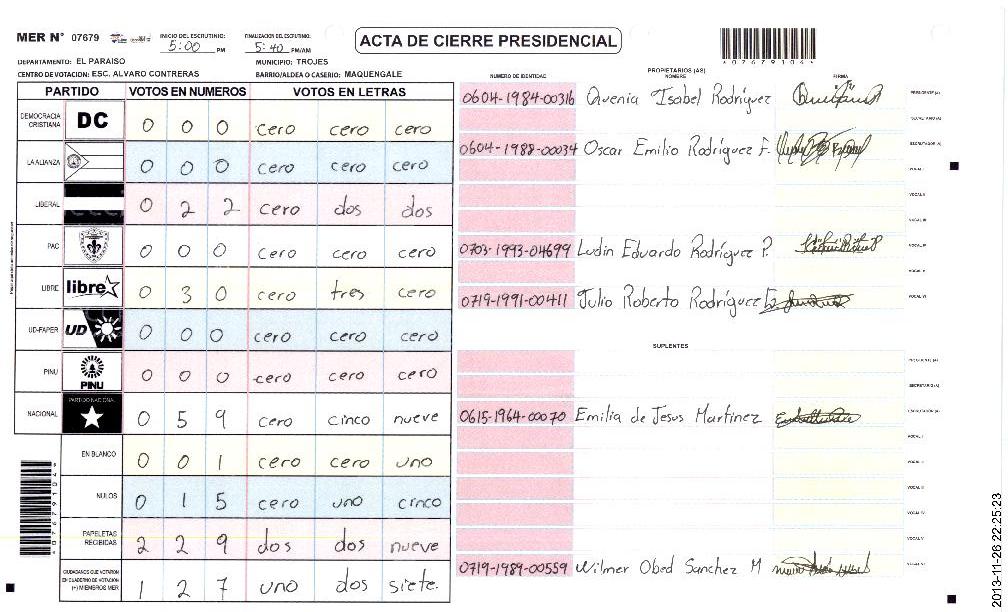 MER N° 07679
INICIO DEL ESCRUTINIO: 5:00 PM
FINALIZACION DEL ESCRUTINIO: 5:40 PM/AM
ACTA DE CIERRE PRESIDENCIAL
*07679104*
DEPARTAMENTO: EL PARAISO
MUNICIPIO: TROJES
CENTRO DE VOTACION: ESC. ALVARO CONTRERAS
BARRIO/ALDEA O CASERIO: MAQUENGALE
PARTIDO VOTOS EN NUMEROS VOTOS EN LETRAS
DEMOCRACIA CRISTIANA DC 0 0 0 cero cero cero
LA ALIANZA 0 0 0 cero cero cero
LIBERAL 0 2 2 cero dos dos
PAC 0 0 0 cero cero cero
LIBRE libre 0 3 0 cero tres cero
UD-FAPER UD 0 0 0 cero cero cero
PINU PINU 0 0 0 cero cero cero
NACIONAL PARTIDO NACIONAL 0 5 9 cero cinco nueve
EN BLANCO 0 0 1 cero cero uno
NULOS 0 1 5 cero uno cinco
PAPELETAS RECIBIDAS 2 2 9 dos dos nueve
CIUDADANOS QUE VOTARON EN CUADERNO DE VOTACION (+) MIEMBROS MER 1 2 7 uno dos siete.
*07679104*
NUMERO DE IDENTIDAD PROPIETARIOS (AS) NOMBRE FIRMA
0604-1984-00316 Quenia Isabel Rodríguez PRESIDENTE (A)
SECRETARIO (A)
0604-1988-00034 Oscar Emilio Rodríguez F. ESCRUTADOR (A)
VOCAL I
VOCAL II
VOCAL III
0703-1993-04699 Ludin Eduardo Rodríguez P. VOCAL IV
VOCAL V
0719-1991-00411 Julio Roberto Rodríguez VOCAL VI
SUPLENTES
PRESIDENTE (A)
SECRETARIO (A)
0615-1964-00070 Emilia de Jesus Martinez ESCRUTADOR (A)
VOCAL I
VOCAL II
VOCAL III
VOCAL IV
VOCAL V
0719-1989-00559 Wilmer Obed Sanchez M VOCAL VI
2013-11-26 22:25:23